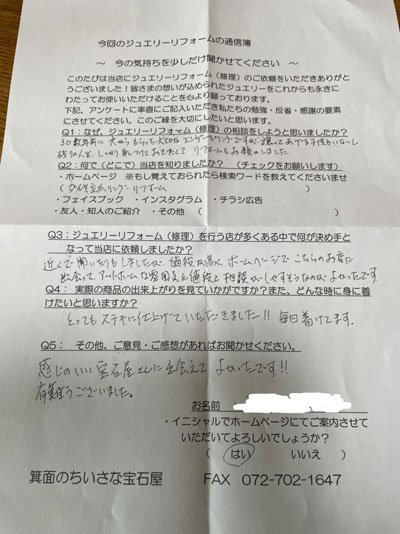 今回のジュエリーリフォームの通信簿
～ 今の気持ちを少しだけ聞かせてください ～
このたびは当店にジュエリーリフォーム（修理）のご依頼をいただきありがと
うございました！皆さまの想いが込められたジュエリーをこれからも永きに
わたってお使いいただけることを心より願っております。
下記、アンケートに率直にご記入いただき私たちの勉強・反省・感謝の要素
にさせてください。このご縁を大切にしたいと思います。
Q1：なぜ、ジュエリーリフォーム（修理）の相談をしようと思いましたか？
30数年前に
リフォームをお願いしました。
Q2：何で（どこで）当店を知りましたか？ （チェックをお願いします）
・ホームページ ※もし覚えておられたら検索ワードを教えてくださいませ
（ リング リフォーム ）
・フェイスブック ・インスタグラム ・チラシ広告
・友人・知人のご紹介 ・その他（ ）
Q3：ジュエリーリフォーム（修理）を行う店が多くある中で何が決め手と
なって当店に依頼しましたか？
近くで聞いたりもしましたが、値段が高く ホームページで こちらのお店に
出会って、アットホームな雰囲気と値段と相談がしやすそうなのがよかったです
Q4：実際の商品の出来上がりを見ていかがですか？また、どんな時に身に着
けたいと思いますか？
とってもステキに仕上げていただきました!! 毎日着けてます。
Q5： その他、ご意見・ご感想があればお聞かせください。
感じのいい宝石屋さんに出会えてよかったです!!
有難うございました。
お名前
・イニシャルでホームページにてご案内させて
いただいてよろしいでしょうか？
（ はい いいえ ）
箕面のちいさな宝石屋 FAX 072-702-1647